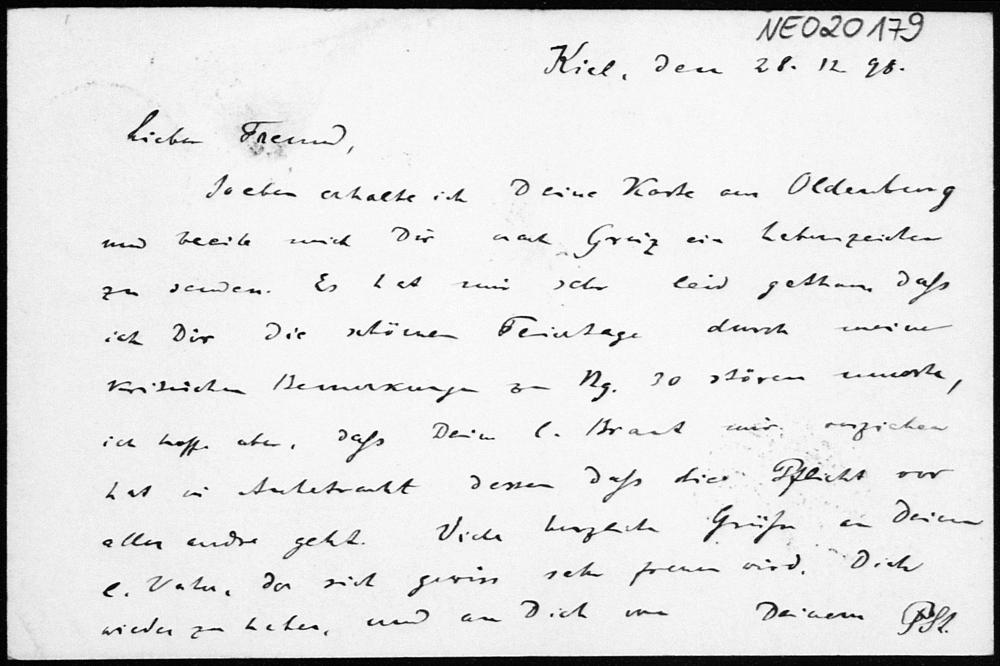 NEO20179
Kiel, den 28. 12. 98.
Lieber Freund,
Soeben erhalte ich Deine Karte aus Oldenburg
und beeile mich Dir nach Greiz ein Lebenszeichen
zu senden. Es hat mir sehr leid gethan daß
ich Dir die schönen Feiertage durch meine
kritischen Bemerkungen zu Ng. 30 stören musste,
ich hoffe aber, daß Deine l. Braut mir verziehen
hat in Anbetracht dessen daß die Pflicht vor
allem andre geht. Viele herzliche Grüße an Deinen
l. Vater, der sich gewiss sehr freuen wird, Dich
wieder zu haben, und an Dich von Deinem